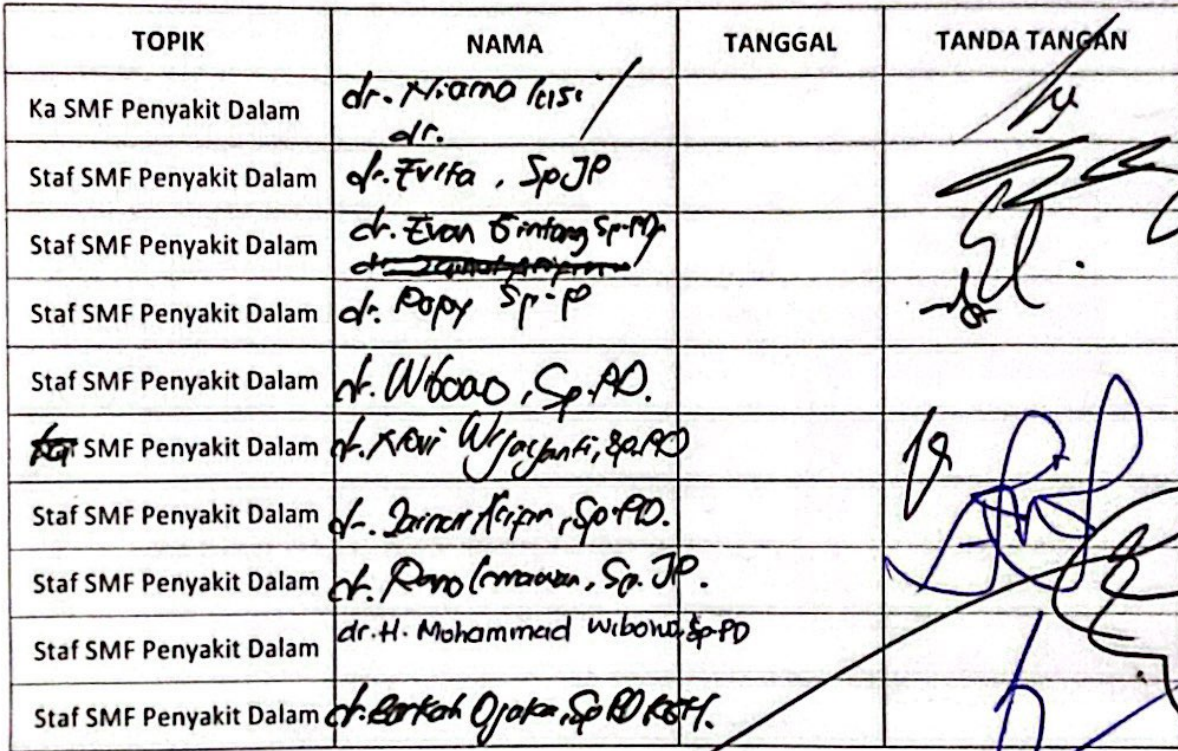 TOPIK NAMA TANGGAL TANDA TANGAN
Ka SMF Penyakit Dalam dr.
dr.
Staf SMF Penyakit Dalam dr. Evita, SpJP
Staf SMF Penyakit Dalam dr. Evan Bintang Sp.PD
Staf SMF Penyakit Dalam dr. Popy Sp.P
Staf SMF Penyakit Dalam dr. Wibowo, Sp.PD.
SMF Penyakit Dalam dr. Novi Wijayanti, Sp.PD
Staf SMF Penyakit Dalam dr. Zainal Aripin, Sp.PD.
Staf SMF Penyakit Dalam dr. Sp.JP.
Staf SMF Penyakit Dalam dr. H. Mohammad Wibowo, Sp.PD
Staf SMF Penyakit Dalam dr. Barkah Djaka, SpPD